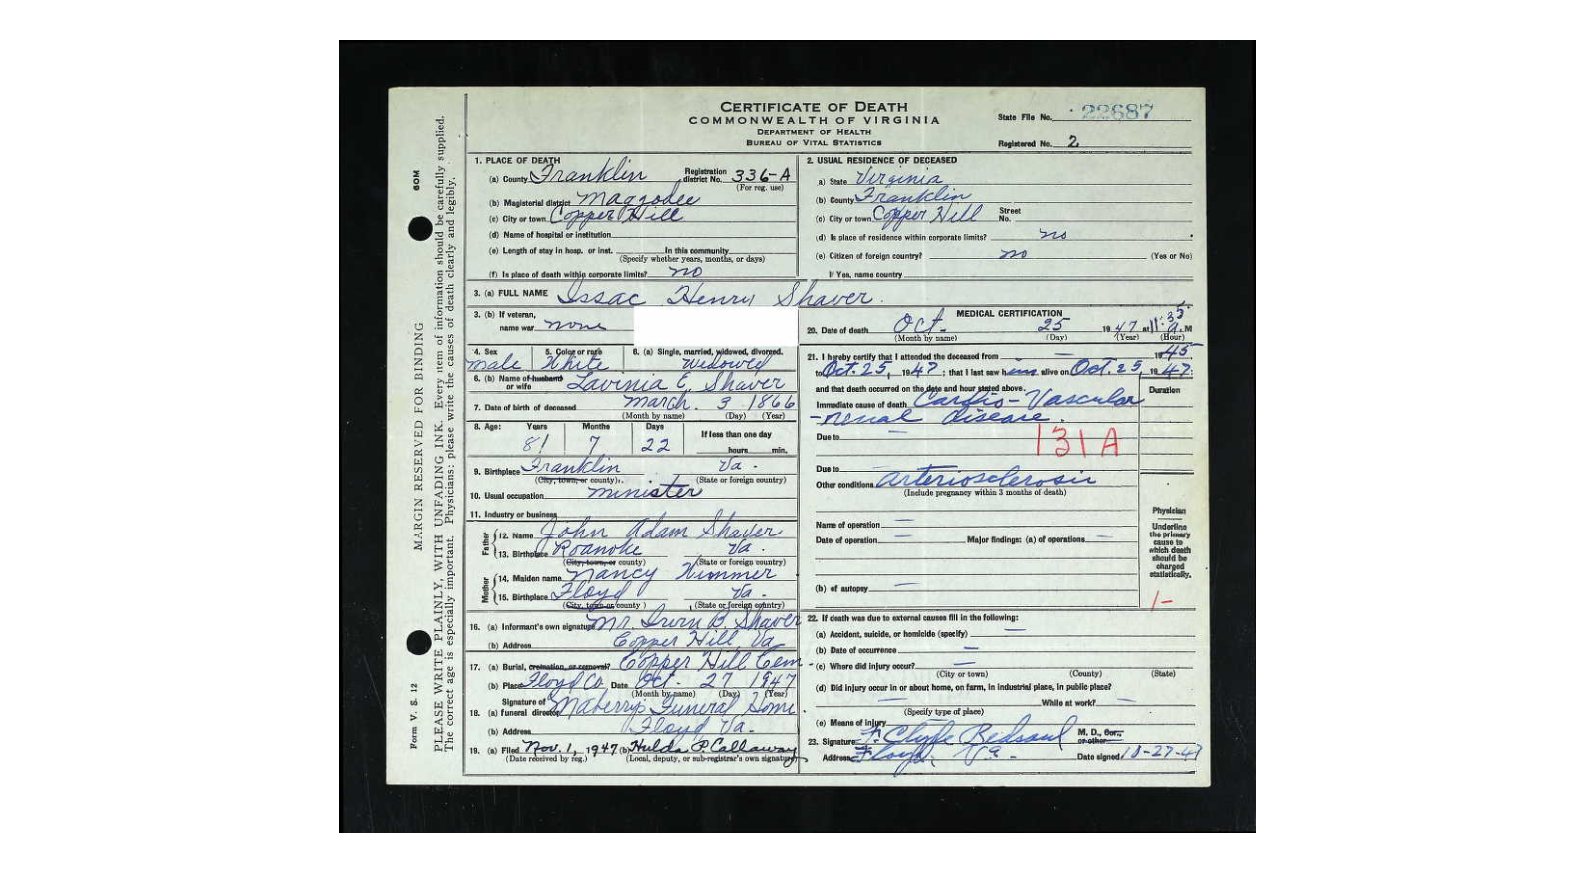 CERTIFICATE OF DEATH
COMMONWEALTH OF VIRGINIA
DEPARTMENT OF HEALTH
BUREAU OF VITAL STATISTICS
State File No. 22687
Registered No. 2
60M
MARGIN RESERVED FOR BINDING
Form V. S. 12
PLEASE WRITE PLAINLY, WITH UNFADING INK. Every item of information should be carefully supplied.
The correct age is especially important. Physicians: please write the causes of death clearly and legibly.
1. PLACE OF DEATH
(a) County Franklin Registration district No. 336-A
(For reg. use)
(b) Magisterial district Maggodee
(c) City or town Copper Hill
(d) Name of hospital or institution
(e) Length of stay in hosp. or inst. In this community
(Specify whether years, months, or days)
(f) Is place of death within corporate limits? no
2. USUAL RESIDENCE OF DECEASED
a) State Virginia
(b) County Franklin
(c) City or town Copper Hill Street No.
(d) Is place of residence within corporate limits? no
(e) Citizen of foreign country? no (Yes or No)
If Yes, name country
3. (a) FULL NAME Issac Henry Shaver
3. (b) If veteran, name war none
4. Sex 5. Color or race 6. (a) Single, married, widowed, divorced.
male White Widowed
6. (b) Name of husband or wife Lavinia E. Shaver
7. Date of birth of deceased March 3 1866
(Month by name) (Day) (Year)
8. Age: Years Months Days If less than one day
81 7 22 hours min.
9. Birthplace Franklin Va.
(City, town, or county) (State or foreign country)
10. Usual occupation minister
11. Industry or business
Father
12. Name John Adam Shaver
13. Birthplace Roanoke Va.
(City, town, or county) (State or foreign country)
Mother
14. Maiden name Nancy Kimmer
15. Birthplace Floyd Va.
(City, town or county) (State or foreign country)
16. (a) Informant's own signature Mr. Irvin B. Shaver
(b) Address Copper Hill, Va
17. (a) Burial, cremation, or removal? Copper Hill Cem
(b) Place Floyd Co. Date Oct. 27 1947
(Month by name) (Day) (Year)
18. (a) Signature of funeral director Maberry's Funeral Home
(b) Address Floyd Va.
19. (a) Filed Nov. 1, 1947 (b) Hulda P. Callaway
(Date received by reg.) (Local, deputy, or sub-registrar's own signature)
MEDICAL CERTIFICATION
20. Date of death Oct. 25 1947 at 11:35 a. M
(Month by name) (Day) (Year) (Hour)
21. I hereby certify that I attended the deceased from 1945
to Oct. 25, 1947; that I last saw him alive on Oct. 25, 1947;
and that death occurred on the date and hour stated above. Duration
Immediate cause of death Cardio-Vascular
-renal disease.
Due to
131A
Due to
Other conditions arteriosclerosis
(Include pregnancy within 3 months of death)
Name of operation
Date of operation Major findings: (a) of operations
(b) of autopsy
Physician
Underline the primary cause to which death should be charged statistically.
1-
22. If death was due to external causes fill in the following:
(a) Accident, suicide, or homicide (specify)
(b) Date of occurrence
(c) Where did injury occur?
(City or town) (County) (State)
(d) Did injury occur in or about home, on farm, in industrial place, in public place?
While at work?
(Specify type of place)
(e) Means of injury
23. Signature F. Clyde Bedsaul M. D., Cor., or other
Address Floyd, Va. Date signed 10-27-47